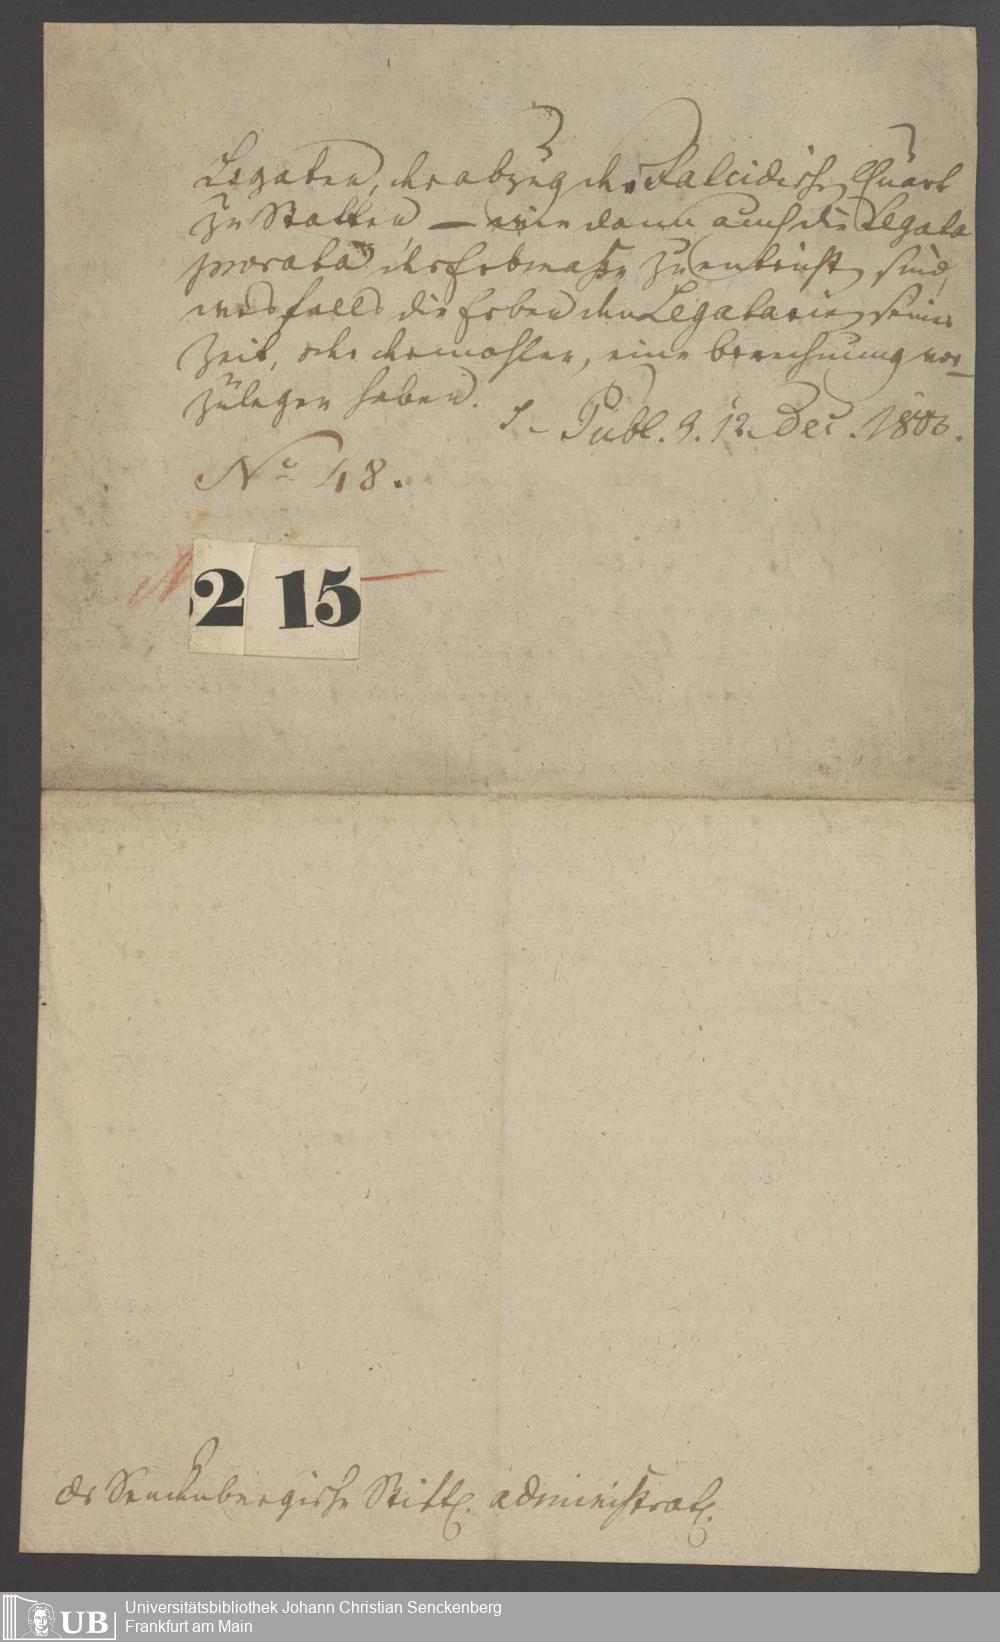 Legaten, der abzug der Falcidischen Quart
zu Statten — wie dann auch die Legata
prorata der Erbmaße zu entrichten sind,
wesfalls die Erben den Legatarien seiner
Zeit, oder dermahlen, eine berechnung vor-
zulegen haben.
Publ. d. 12. Dec. 1806.
No 48.
2 15
Senckenbergische Stift. administrat.
UB Universitätsbibliothek Johann Christian Senckenberg
Frankfurt am Main